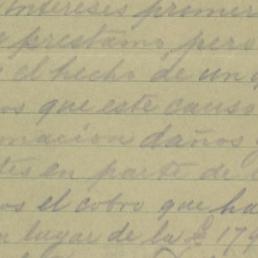 intereses primer
prestamo, pero
el hecho de un
os que este causo
macion daños
tes en parte de
os el cobro que ha
lugar de la £ 179